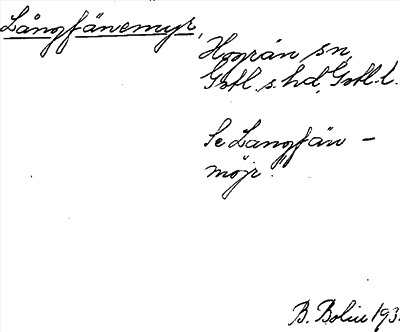 Långfänemyr,
Hogrän sn,
Gotl. s. hd, Gotl. l.
Se Langfän-
möjr.
B. Bolin 193